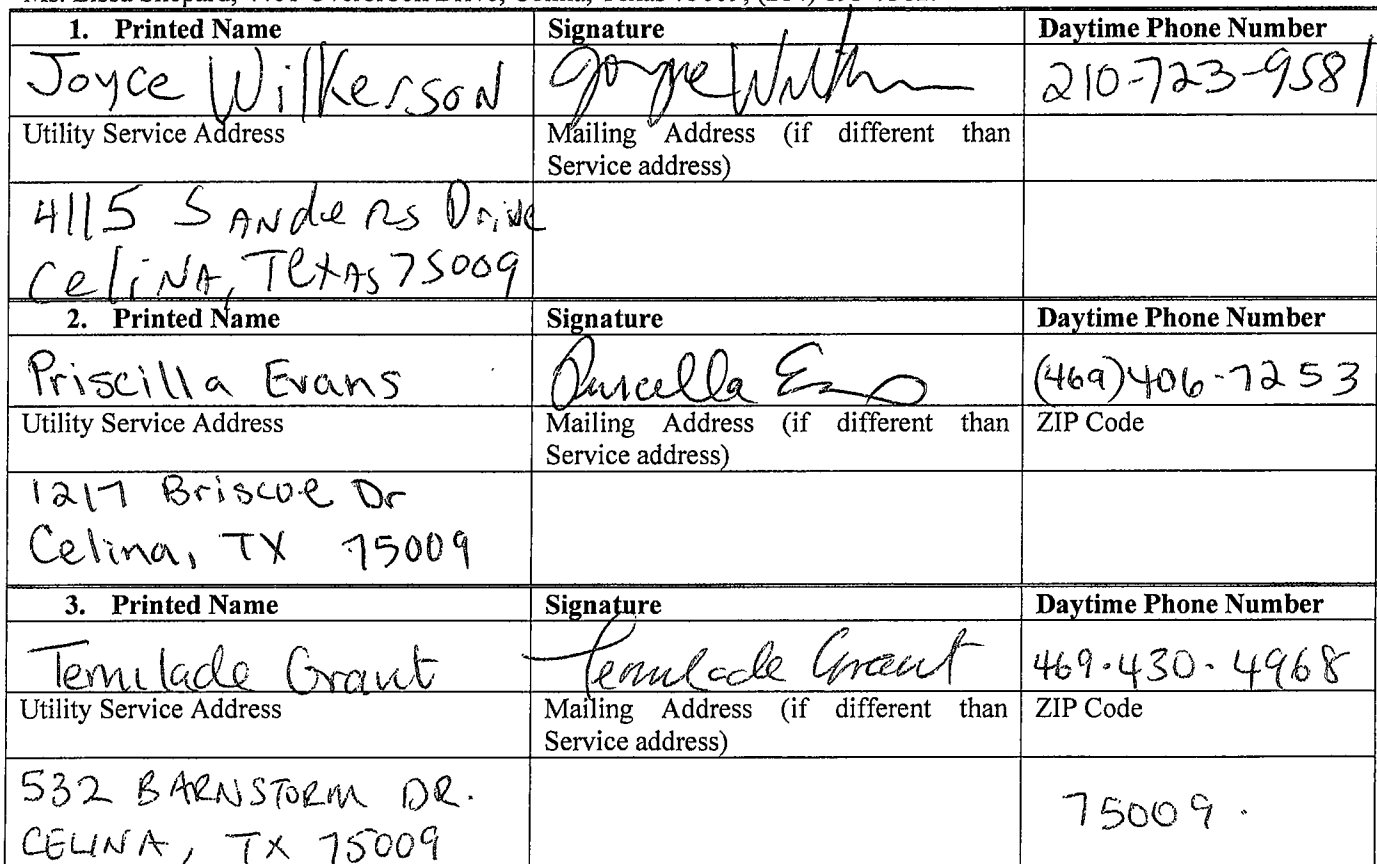 1. Printed Name Signature Daytime Phone Number
Joyce Wilkerson Joyce 210-723-9581
Utility Service Address Mailing Address (if different than
Service address)
4115 SANdeRs Drive
CeliNA, TexAs 75009
2. Printed Name Signature Daytime Phone Number
Priscilla Evans Priscilla (469)406-7253
Utility Service Address Mailing Address (if different than ZIP Code
Service address)
1217 Briscoe Dr
Celina, TX 75009
3. Printed Name Signature Daytime Phone Number
Temilade Grant Temilade Grant 469.430.4968
Utility Service Address Mailing Address (if different than ZIP Code
Service address)
532 BARNSTORM DR. 75009.
CELINA, TX 75009